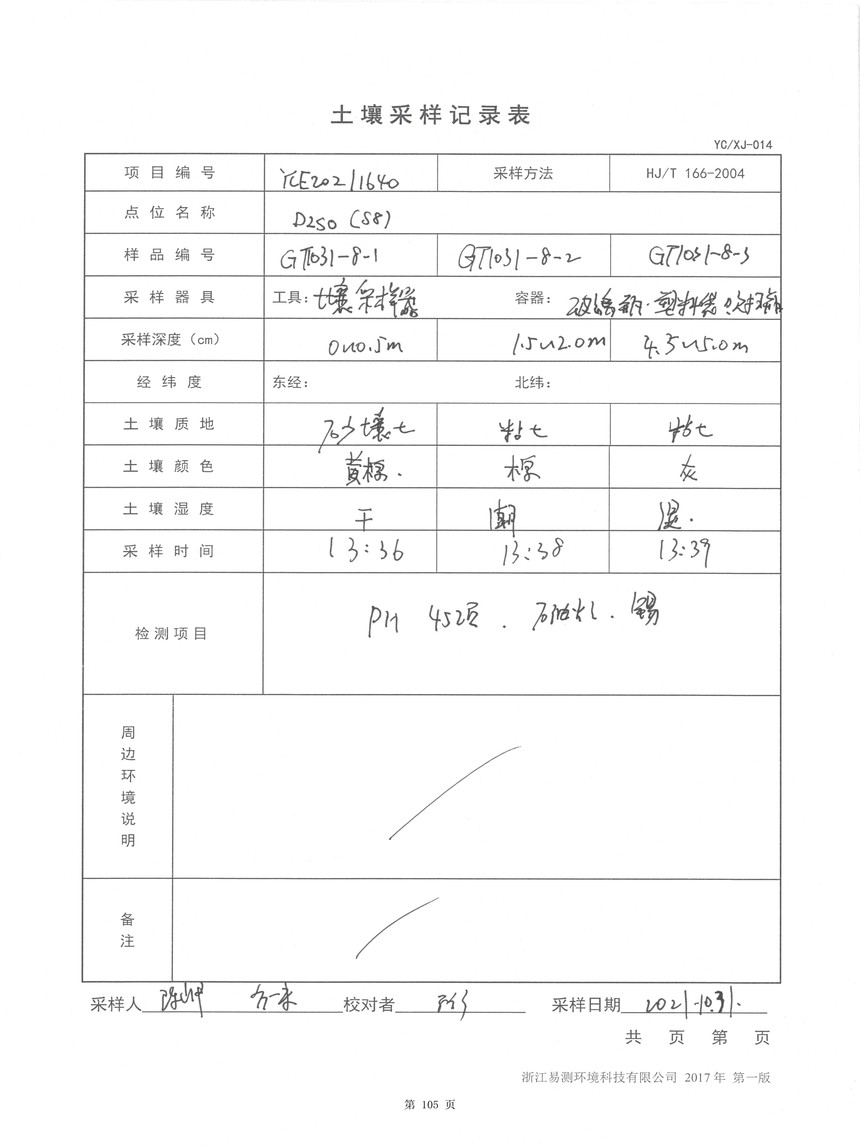 土壤采样记录表
YC/XJ-014
项目编号 YCE20211640 采样方法 HJ/T 166-2004
点位名称 D250 (S8)
样品编号 GT1031-8-1 GT1031-8-2 GT1031-8-3
采样器具 工具：土壤采样器 容器：玻璃瓶.塑料袋
采样深度（cm） 0~0.5m 1.5~2.0m 4.5~5.0m
经纬度 东经： 北纬：
土壤质地 砂壤土 粘土 粘土
土壤颜色 黄棕. 棕 灰
土壤湿度 干 潮 湿.
采样时间 13:36 13:38 13:39
检测项目 PH 45项 . 石油烃 . 锡
周边环境说明
备注
采样人 校对者 采样日期 2021.10.31.
共 页 第 页
浙江易测环境科技有限公司 2017年 第一版
第 105 页